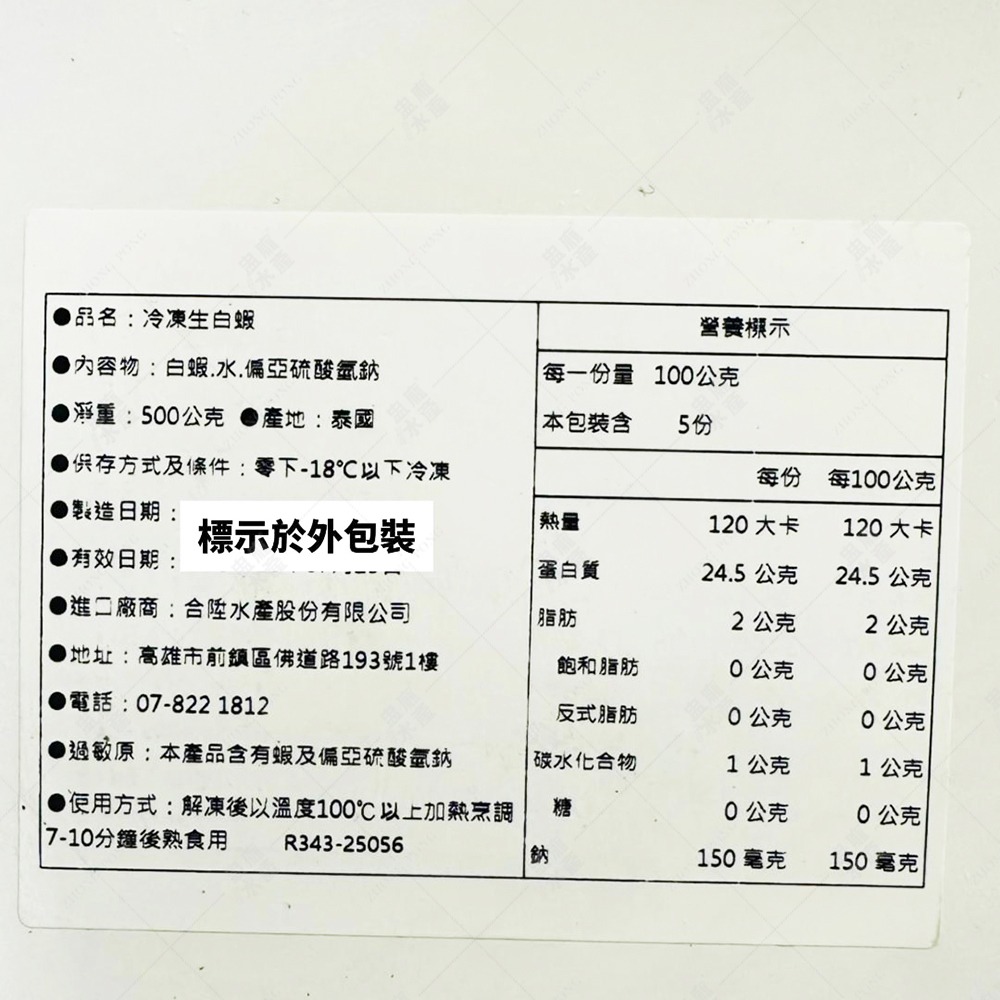 ●品名：冷凍生白蝦
●內容物：白蝦.水.偏亞硫酸氫鈉
●淨重：500公克 ●產地：泰國
●保存方式及條件：零下-18℃以下冷凍
●製造日期：
標示於外包裝
●有效日期：
●進口廠商：合陞水產股份有限公司
●地址：高雄市前鎮區佛道路193號1樓
●電話：07-822 1812
●過敏原：本產品含有蝦及偏亞硫酸氫鈉
●使用方式：解凍後以溫度100℃以上加熱烹調
7-10分鐘後熟食用 R343-25056
營養標示
每一份量 100公克
本包裝含 5份
每份 每100公克
熱量 120 大卡 120 大卡
蛋白質 24.5 公克 24.5 公克
脂肪 2 公克 2 公克
飽和脂肪 0 公克 0 公克
反式脂肪 0 公克 0 公克
碳水化合物 1 公克 1 公克
糖 0 公克 0 公克
鈉 150 毫克 150 毫克